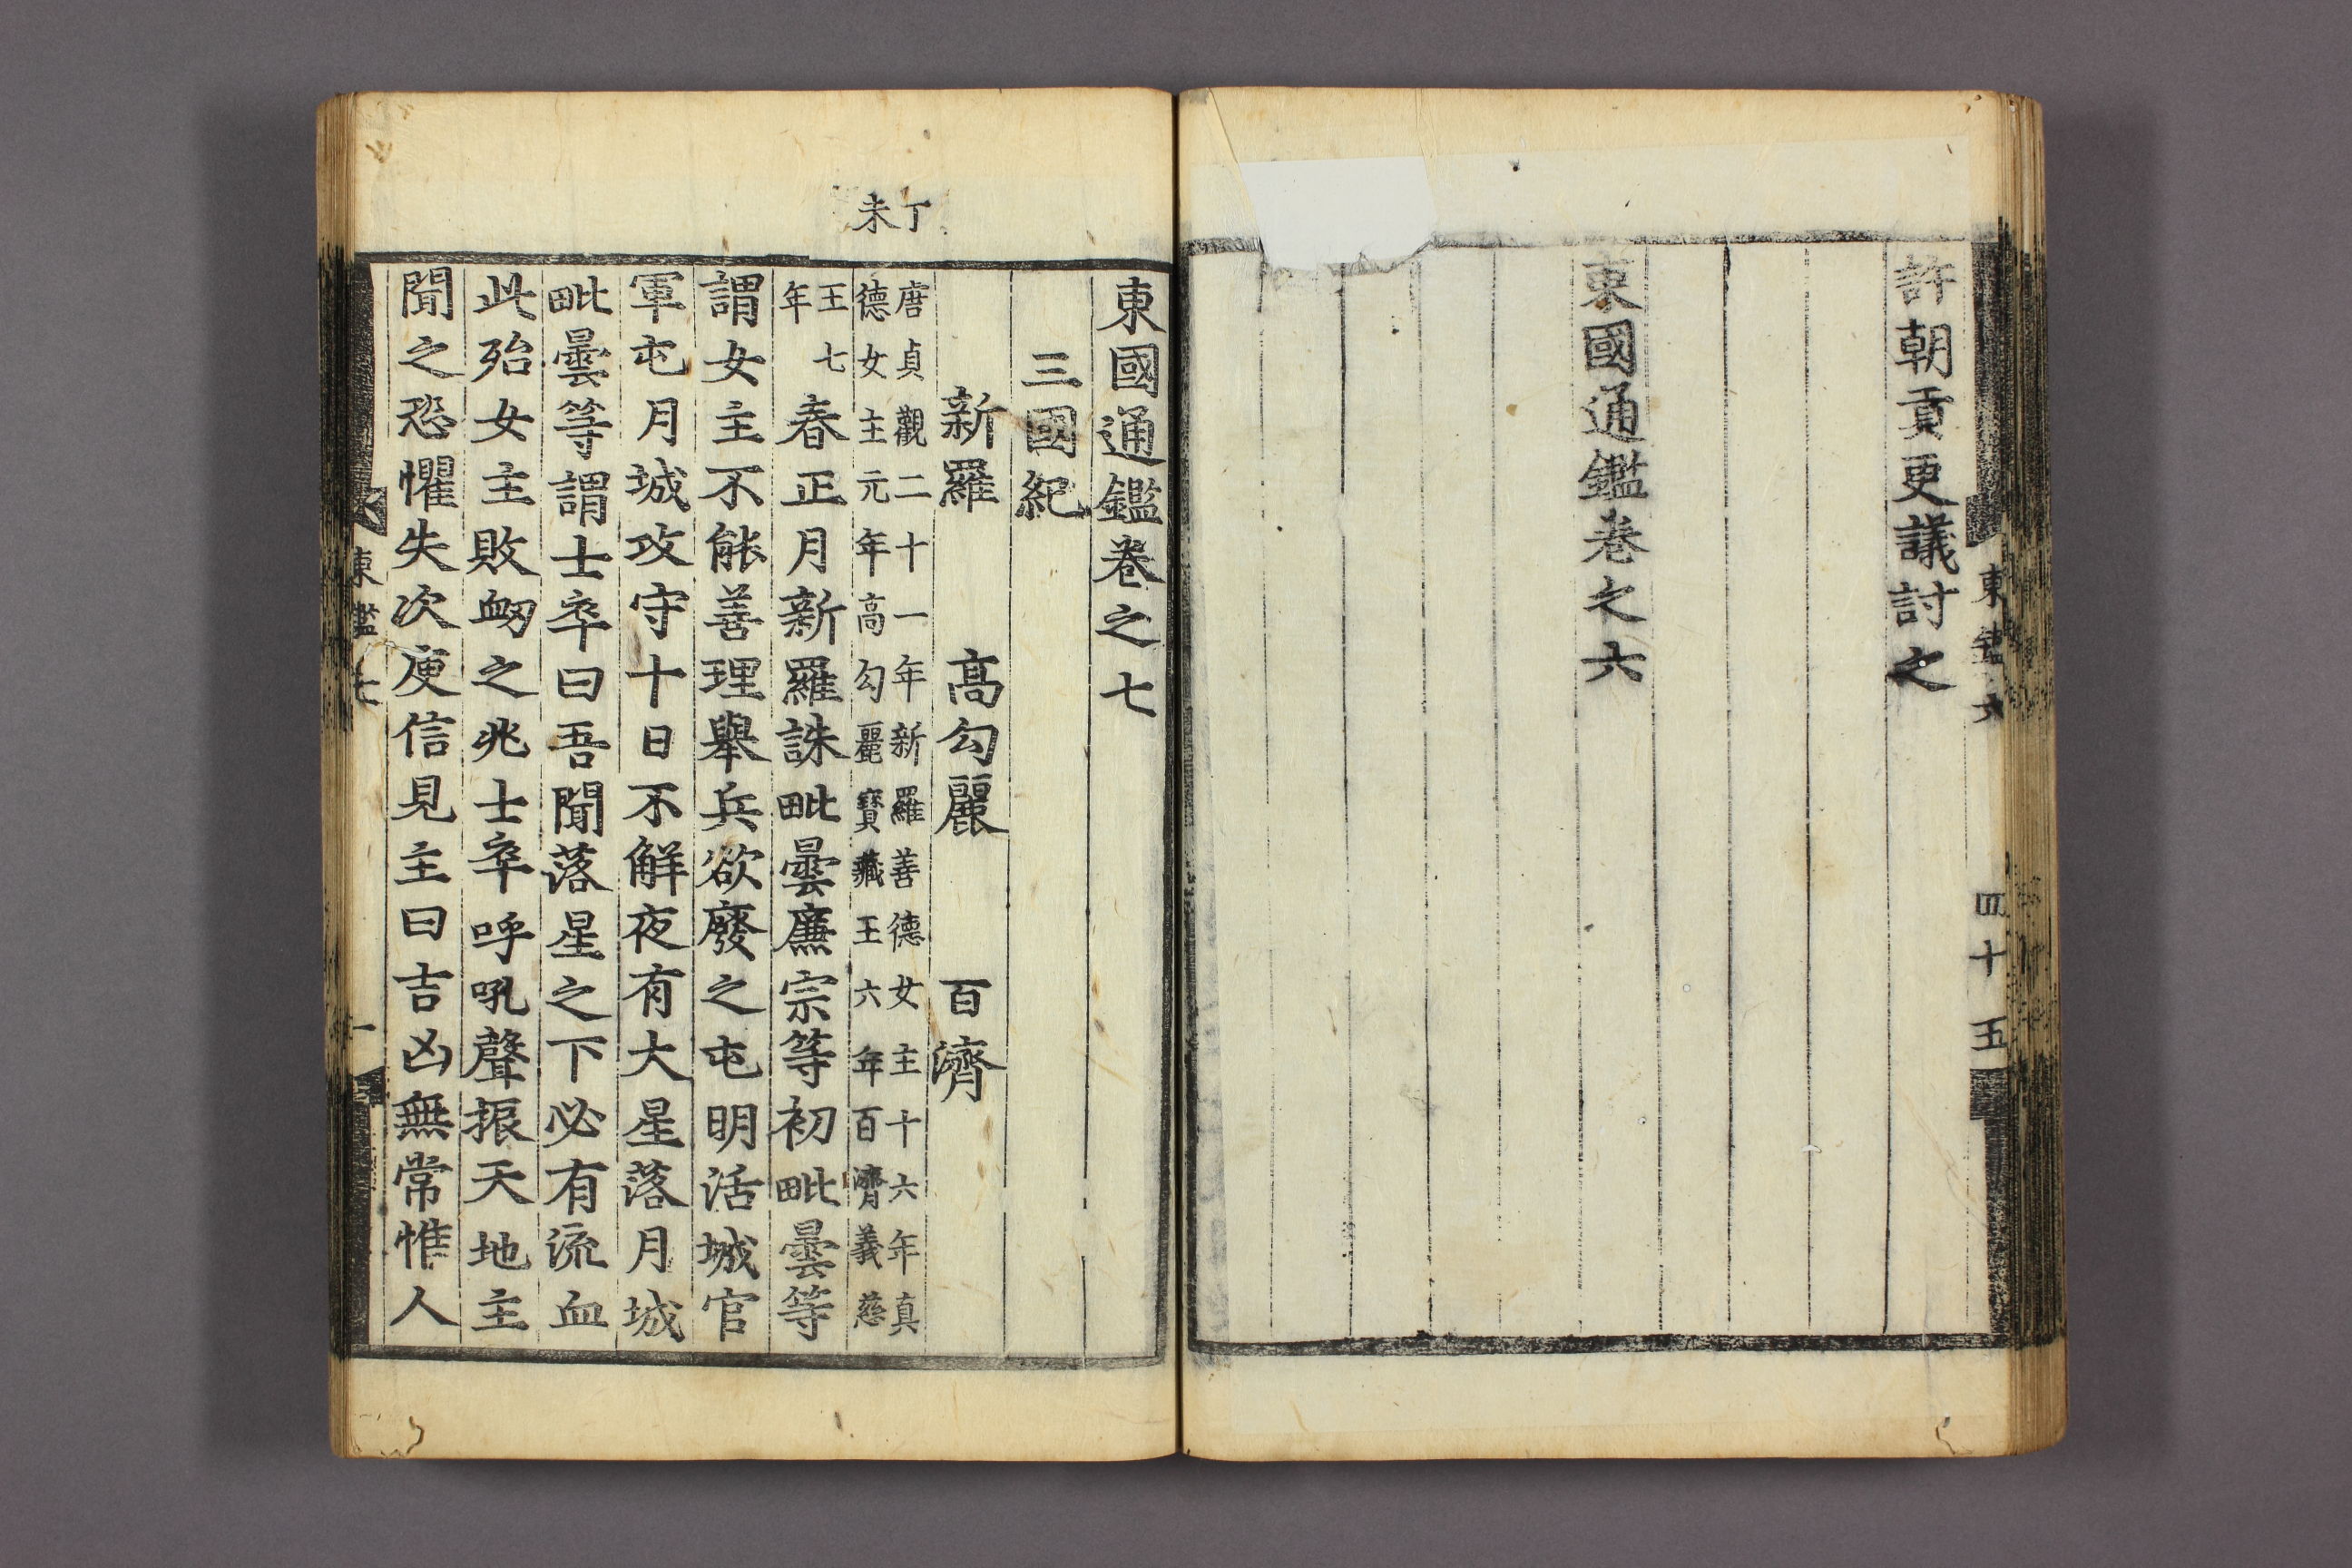 許朝貢更議討之
東國通鑑卷之六
東鑑六
四十五
丁未
東國通鑑卷之七
三國紀
新羅 高勾麗 百濟
唐貞觀二十一年新羅善德女主十六年真
德女主元年高勾麗寶藏王六年百濟義慈
王七
年
春正月新羅誅毗曇廉宗等初毗曇等
謂女主不能善理舉兵欲廢之屯明活城官
軍屯月城攻守十日不解夜有大星落月城
毗曇等謂士卒曰吾聞落星之下必有流血
此殆女主敗衂之兆士卒呼吼聲振天地主
聞之恐懼失次庾信見主曰吉凶無常惟人
東鑑七
一